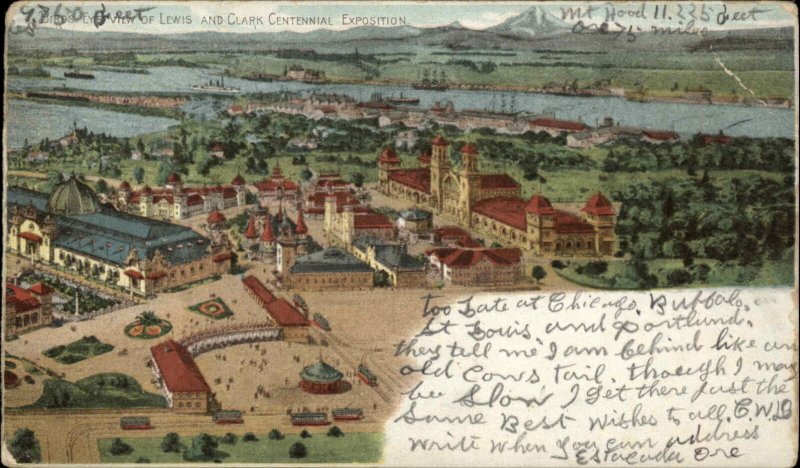 9750 feet
BIRDS-EYE VIEW OF LEWIS AND CLARK CENTENNIAL EXPOSITION.
Mt Hood 11.225 feet
Ore 75 miles
too Late at Chicago. Buffalo.
St Louis and Portland.
they tell me I am behind like an
old Cows tail. though I may
be slow I get there Just the
Same Best wishes to all. E.W.D
write when you can address
Estacada Ore